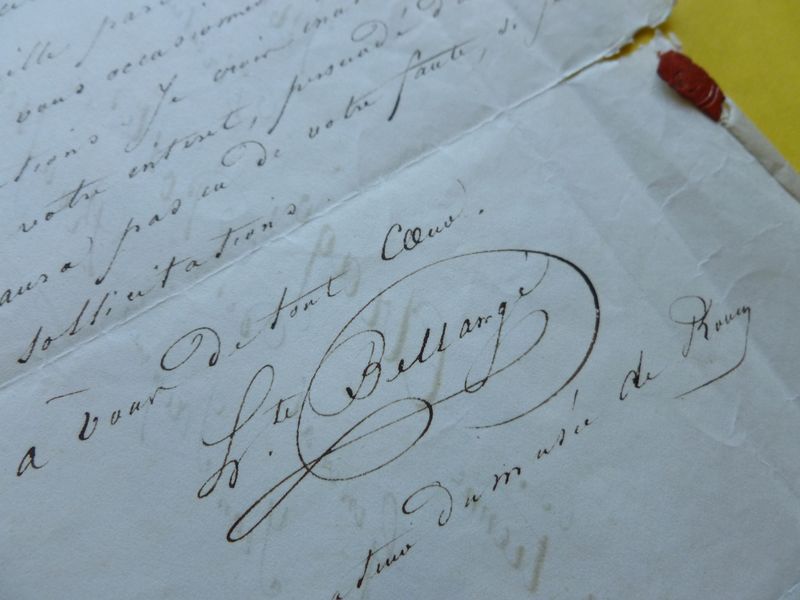 vous occasionner
tions. Je crois
votre interet, persuadé
aura pas eu de votre faute, de
sollicitations.
à vous de tout Cœur.
H.te Bellangé
du musée de Rouen